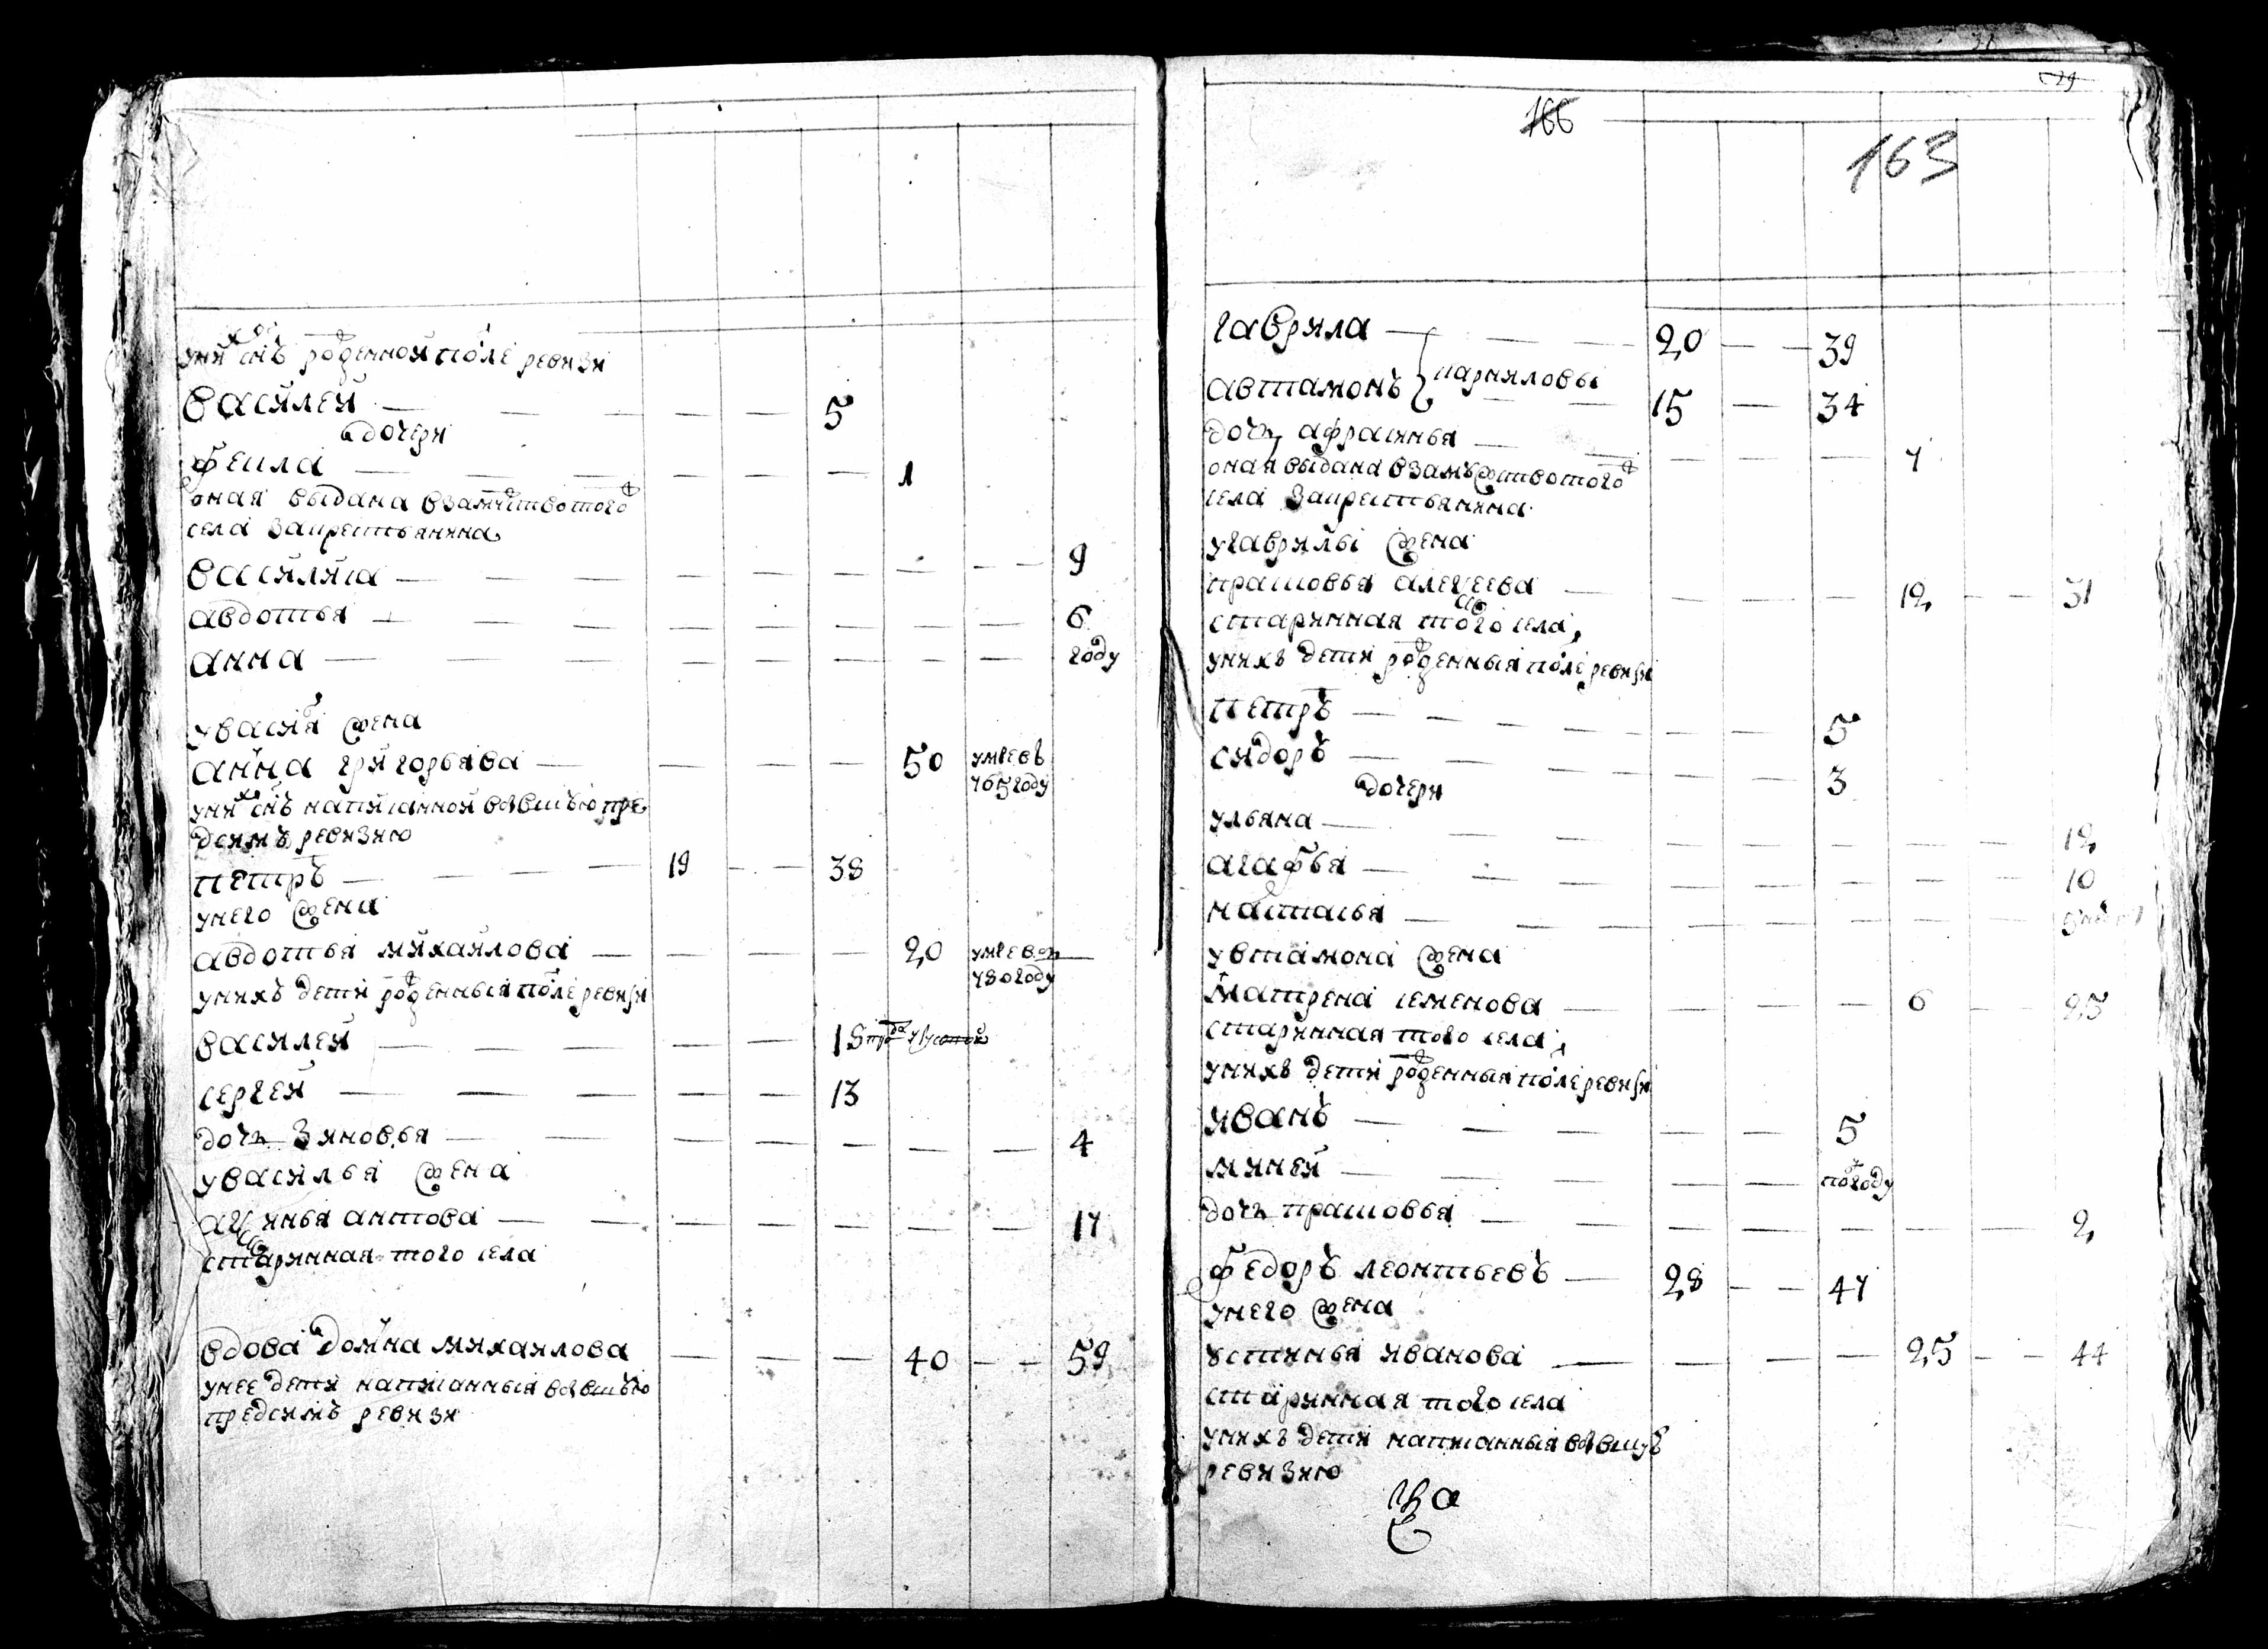 уних снъ рожденной после ревизи
василей — — — — — 5
дочери
фекла — — — — — 1
оная выдана взамужство того ж
села за крестьянина
василиса — — — — — — — — 9
авдотья — — — — — — — — 6
анна — — — — — — — — году
у василья жена
анна григорьева — — — — 50 умре в
765 году
уних снъ написанной в бывшъю пре
д симъ ревизию
петръ — — — — 19 — — 38
у него жена
авдотья михайлова — — — — 20 умре в
780 году
у нихъ дети рожденныя после ревизи
василей — — — — — 15
сергей — — — — — 13
дочь зиновья — — — — — — — 4
у василья жена
аксинья антова — — — — — — — 17
старинная того села
вдова домна михаилова — — — 40 — — 59
у нее дети написанныя в бывшъю
пред симъ ревизи
166
163
гаврила — — — — 20 — — 39
автамонъ — — 15 — 34
кариловы
дочь афросинья — — — — — 7
оная выдана взамъжство того ж
села за крестьянина
у гаврилы жена
прасковья алексеева — — — — 12 — — 31
старинная того села
у нихъ дети рожденныя после ревизи
петръ — — — — — — 5
сидоръ — — — — — — 3
дочери
ульяна — — — — — — — — 12
агафья — — — — — — — — 10
настасья — — — — — — — —
у втамона жена
матрена семенова — — — — 6 — — 25
старинная того села
у нихъ дети рожденныя после ревизи
иванъ — — — — — 5
миней — — — — — погоду
дочь прасковья — — — — — — — — 2
федоръ леонтьевъ — 28 — — 47
у него жена
устинья иванова — — — — 25 — — 44
старинная того села
у нихъ дети написанныя в бывшуъ
ревизию